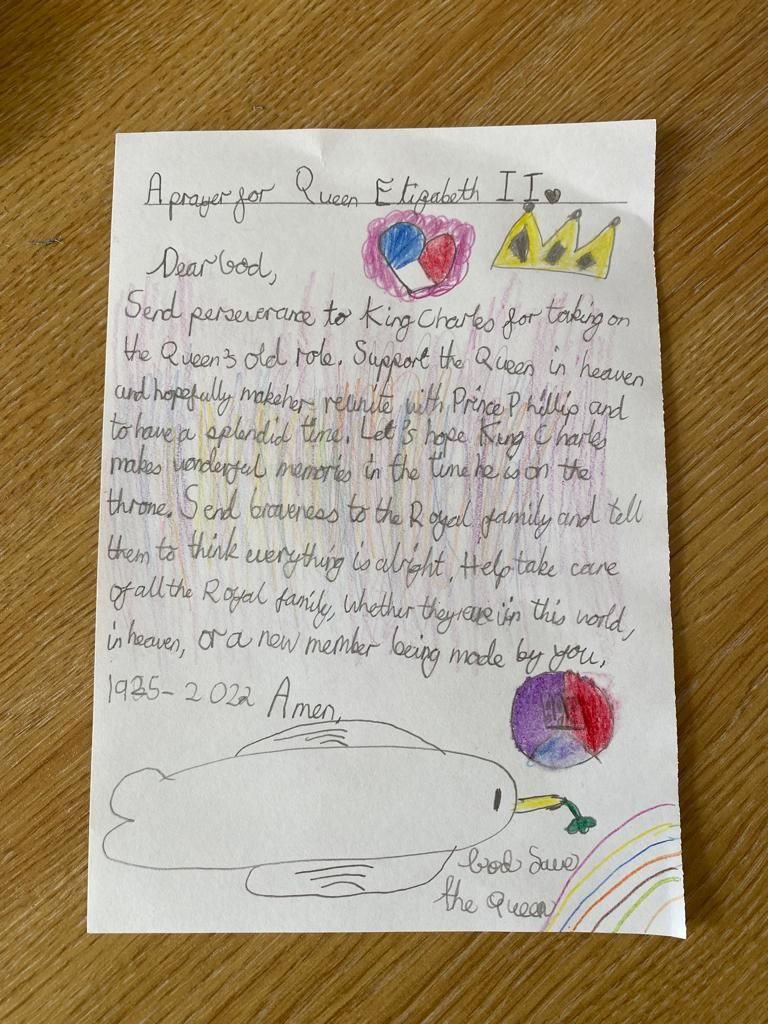 A prayer for Queen Elizabeth II
Dear God,
Send perseverance to King Charles for taking on
the Queen's old role. Support the Queen in heaven
and hopefully make her reunite with Prince Phillip and
to have a splendid time. Let's hope King Charles
makes wonderful memories in the time he is on the
throne. Send braveness to the Royal family and tell
them to think everything is alright. Help take care
of all the Royal family, whether they are in this world,
in heaven, or a new member being made by you.
1935-2022 Amen.
God Save
the Queen